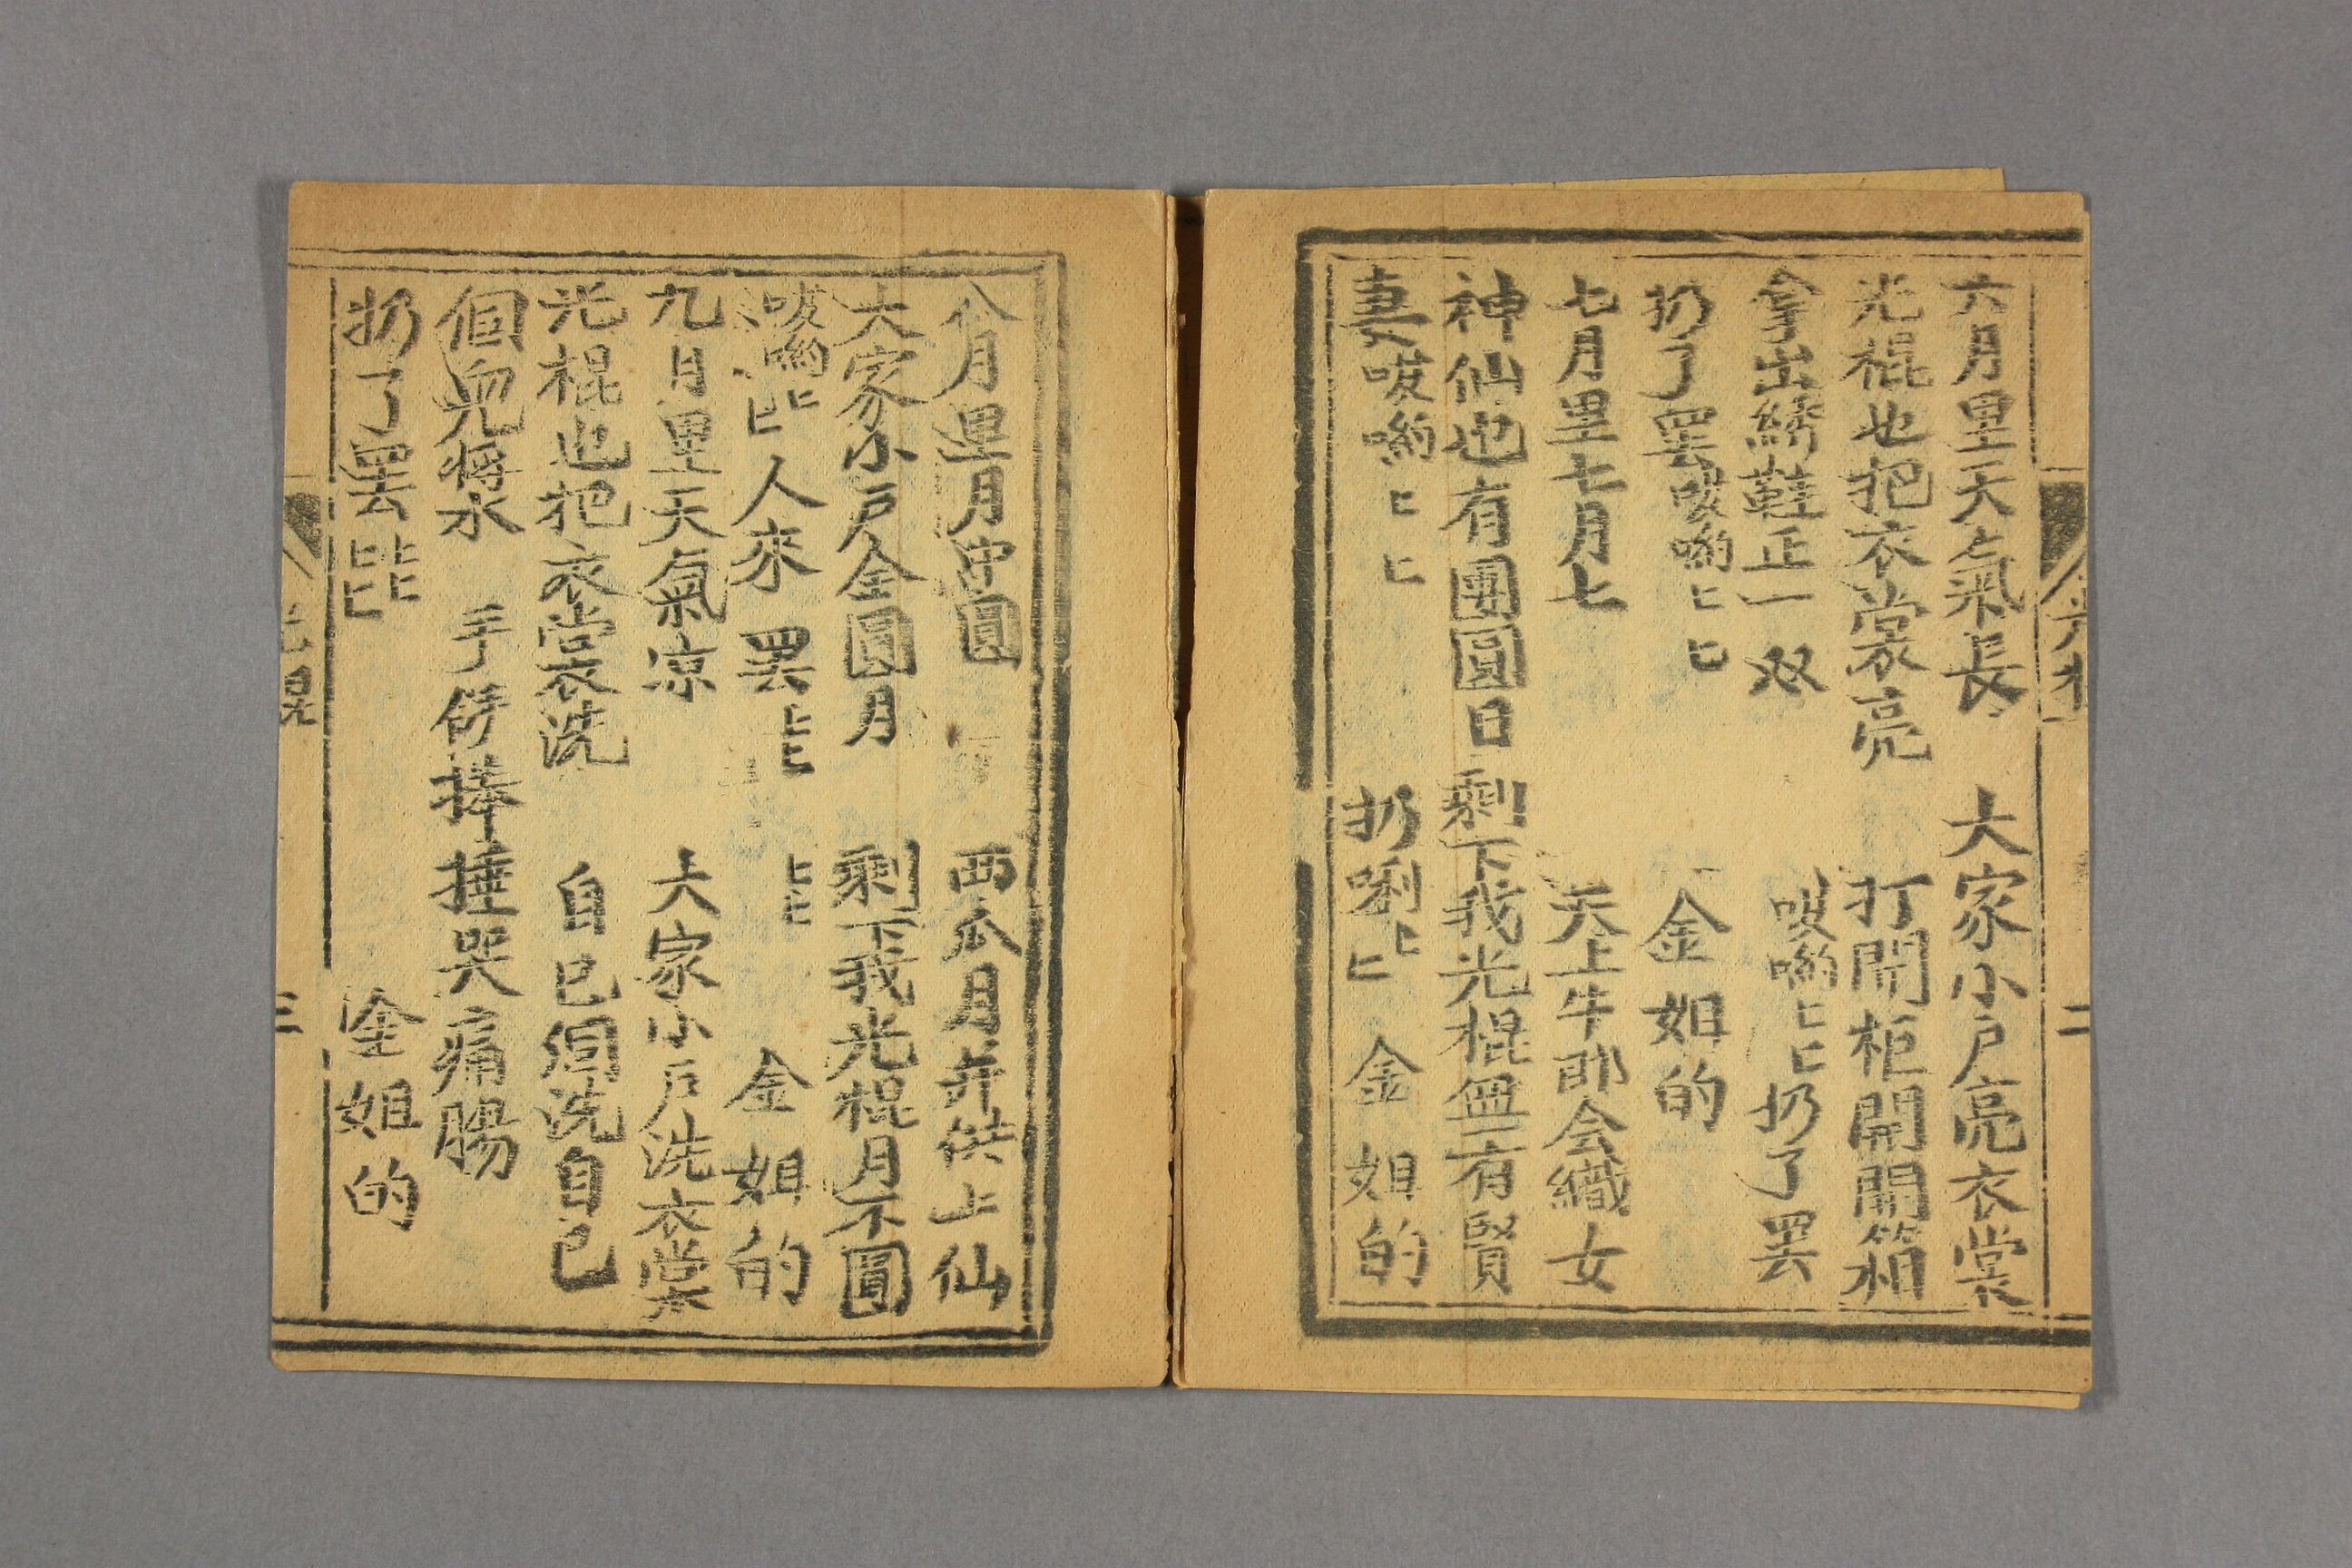 光棍 二
六月里天气氣長 大家小户亮衣裳
光棍也把衣裳亮 打開柜開開箱
拿出綉鞋正一双 哎喲匕匕扔了罢
扔了罢哎喲匕匕 金姐的
七月里七月七 天上牛郎会織女
神仙也有團圓日 剩下我光棍無有賢
妻哎喲匕匕 扔唎匕匕 金姐的
八月里月中圓 西瓜月并供上仙
大家小户全圓月 剩下我光棍月不圓
哎喲匕匕人來罢匕匕 匕匕 金姐的
九月里天氣凉 大家小户洗衣裳
光棍也把衣裳洗 自己個洗自己
個兒將水 手舒捧捶哭痛腸
扔了罢匕匕匕匕 金姐的
光棍 三